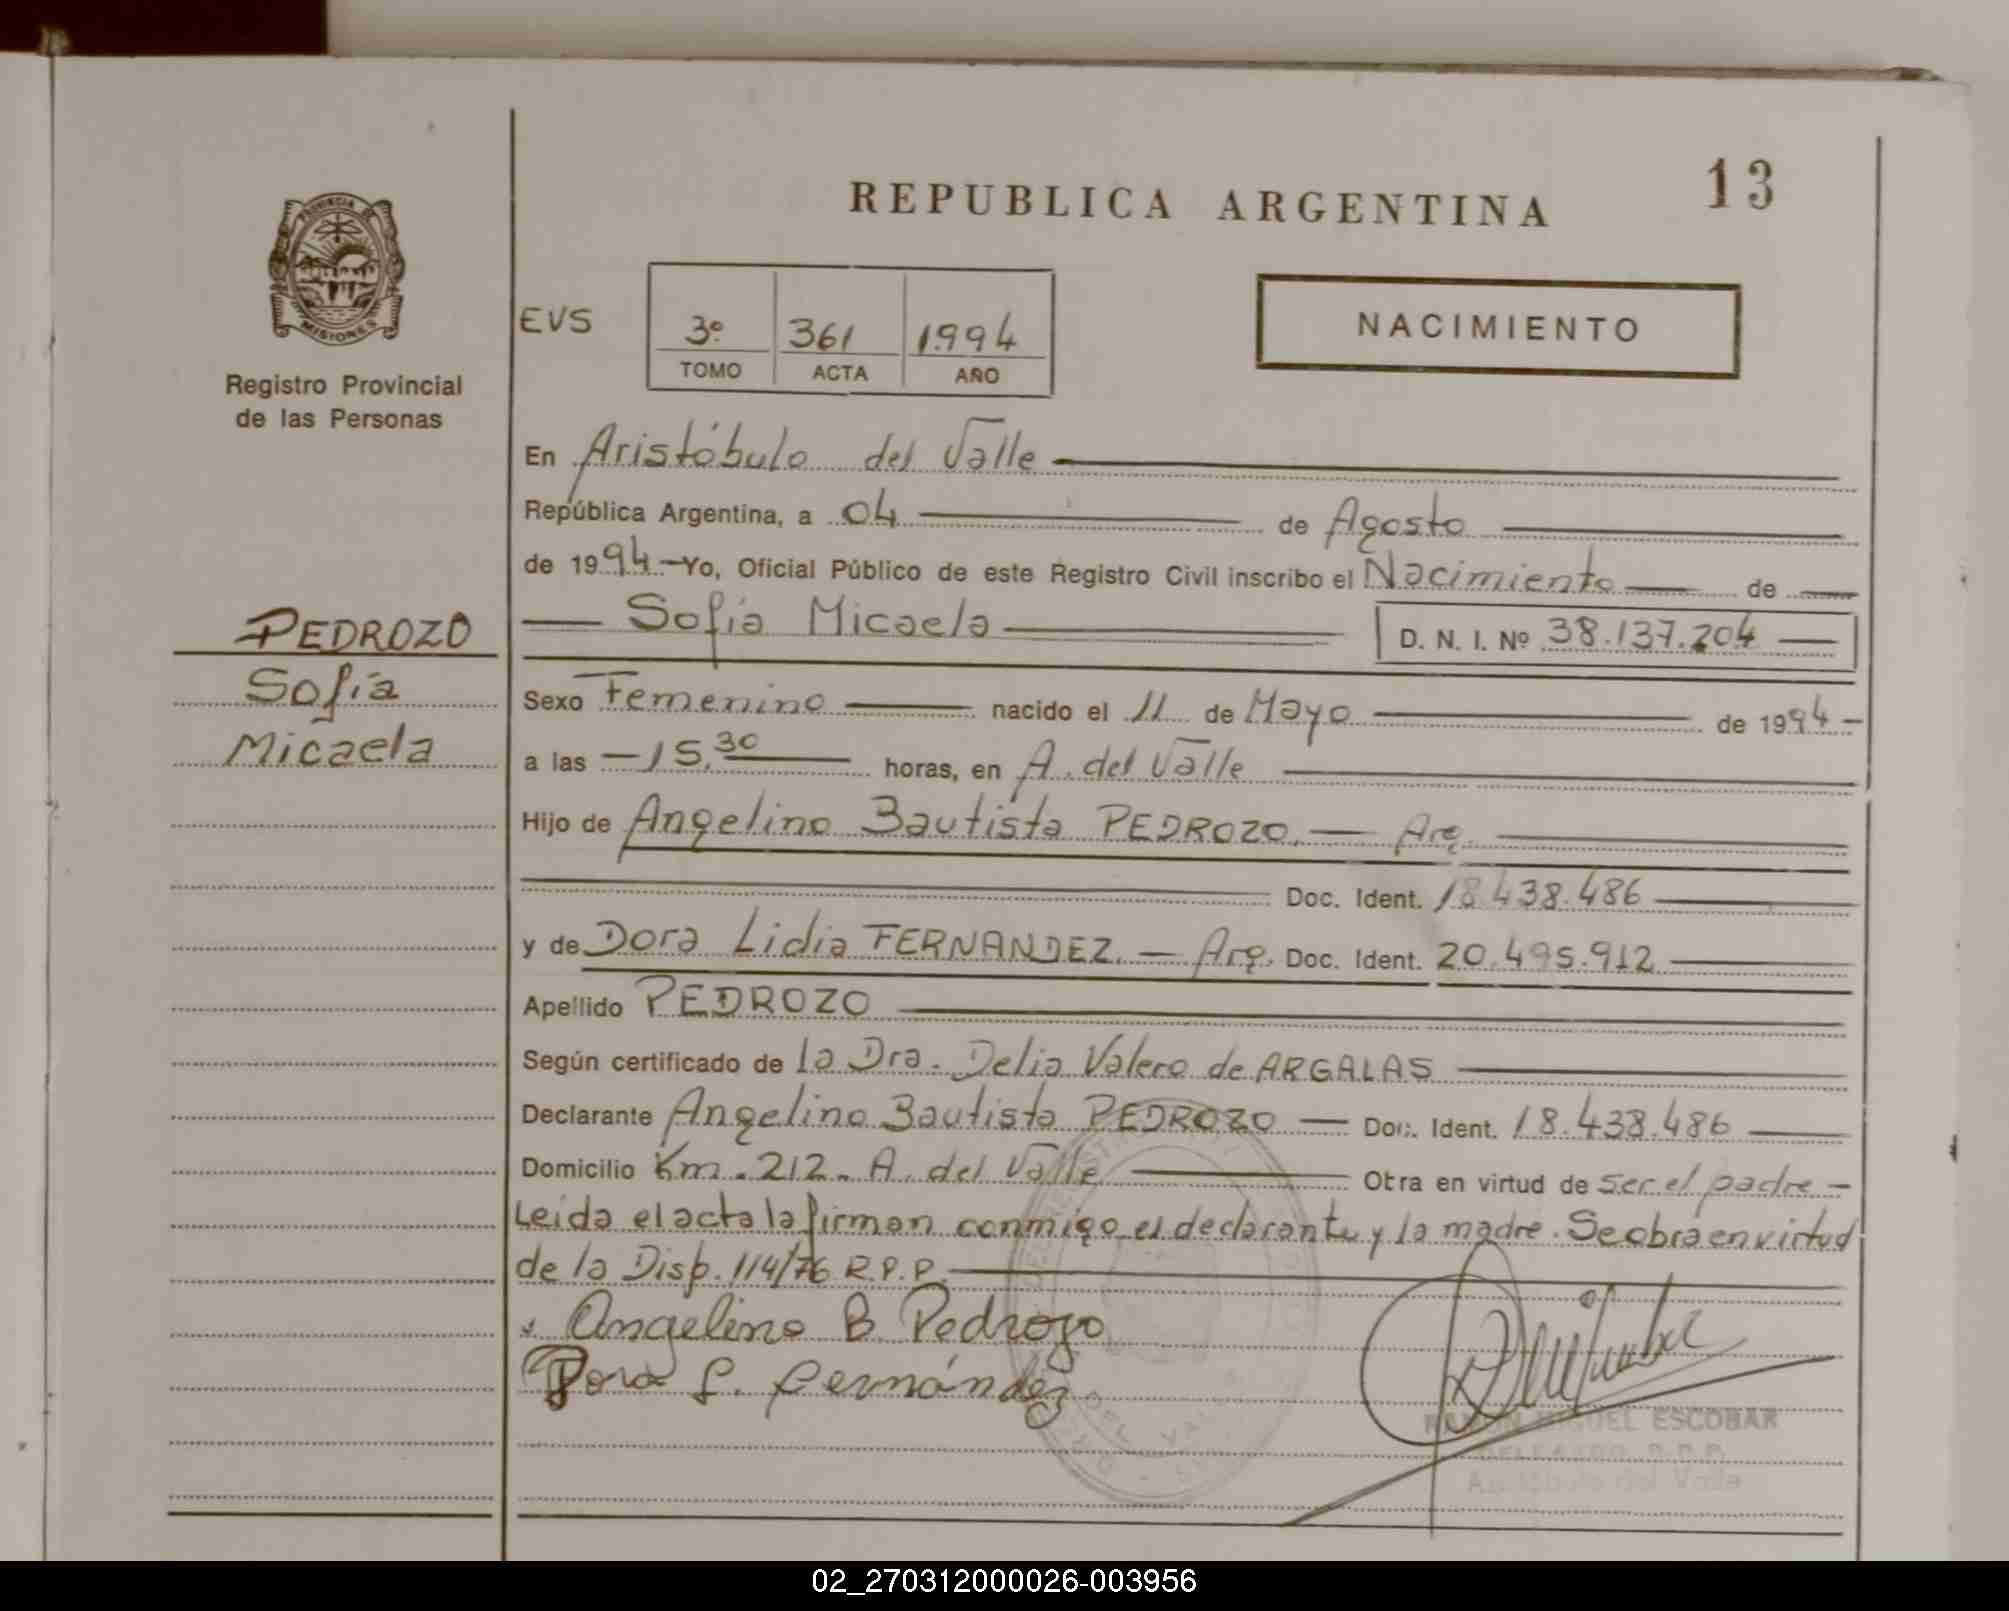 REPUBLICA ARGENTINA
13
PROVINCIA DE
MISIONES
Registro Provincial
de las Personas
EVS
3º 361 1994
TOMO ACTA AÑO
NACIMIENTO
En Aristóbulo del Valle
República Argentina, a 04 de Agosto
de 1994 Yo, Oficial Público de este Registro Civil inscribo el Nacimiento de
Sofía Micaela D. N. I. Nº 38.137.204
PEDROZO
Sofía
Micaela
Sexo Femenino nacido el 11 de Mayo de 1994
a las 15,30 horas, en A. del Valle
Hijo de Angelino Bautista PEDROZO. Arg.
Doc. Ident. 18.438.486
y de Dora Lidia FERNANDEZ. Arg. Doc. Ident. 20.495.912
Apellido PEDROZO
Según certificado de la Dra. Delia Valero de ARGALAS
Declarante Angelino Bautista PEDROZO Doc. Ident. 18.438.486
Domicilio Km. 212. A. del Valle Otra en virtud de ser el padre
Leída el acta la firman conmigo el declarante y la madre. Se obra en virtud
de la Disp. 114/76 R.P.P.
Angelino B Pedrozo
Dora L. Fernández
RAMON MIGUEL ESCOBAR
DELEGADO R.P.P.
Aristóbulo del Valle
02_270312000026-003956